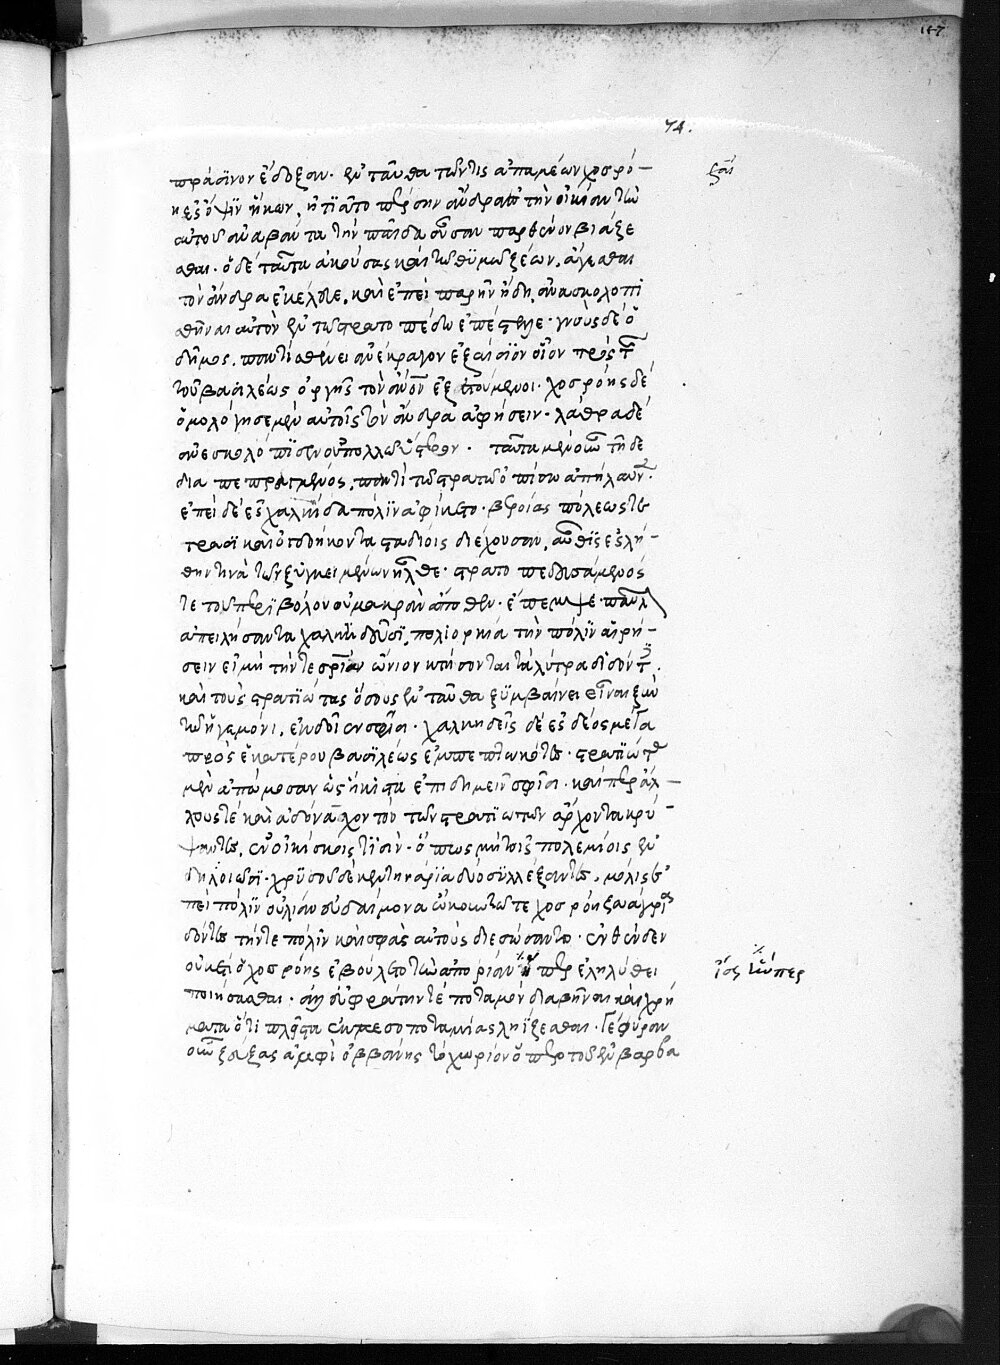 157
74.
πράσινον ἔδοξαν. ἐνταῦθα τῶν τις ἀπαμέων χοσρό-
ῃ ἐς ὄψιν ἥκων, ᾐτιᾶτο πέρσην ἄνδρα ἐς τὴν οἰκίαν τὴν
αὐτοῦ ἀναβάντα τὴν παῖδα οὖσαν παρθένον βιάζε
σθαι. ὁ δὲ ταῦτα ἀκούσας καὶ τῷ θυμῷ ζέων, ἄγεσθαι
τὸν ἄνδρα ἐκέλευε. καὶ ἐπεὶ παρῆν ἤδη, ἀνασκολοπι
σθῆναι αὐτὸν ἐν τῷ στρατοπέδῳ ἐπέστελλε. γνοὺς δὲ ὁ
δῆμος, παντὶ σθένει ἀνέκραγον ἐξαίσιον οἷον πρὸς τῆς
τοῦ βασιλέως ὀργῆς τὸν ἄνθρωπον ἐξαιτούμενοι. χοσρόης δὲ
ὡμολόγησε μὲν αὐτοῖς τὸν ἄνδρα ἀφήσειν. λάθρα δὲ
ἀνεσκολόπισεν οὐ πολλῷ ὕστερον. ταῦτα μὲν οὖν τῇδε
διαπεπραγμένος, παντὶ τῷ στρατῷ ὀπίσω ἀπήλαυνεν.
ἐπεὶ δὲ ἐς χαλκίδα πόλιν ἀφίκετο. βεροίας πόλεως τέτ
τρασι καὶ ὀγδοήκοντα σταδίοις διέχουσαν, αὖθις ἐς λή-
θην τινὰ τῶν ξυγκειμένων ἦλθε. στρατοπεδευσάμενός
τε τοῦ περιβόλου οὐ μακρὰν ἄποθεν. ἔπεμψε παῦλον
ἀπειλήσοντα χαλκιδεῦσι, πολιορκίᾳ τὴν πόλιν αἱρή-
σειν εἰ μὴ τήν τε σωτηρίαν ὤνιον κτήσονται τὰ λύτρα διδόντες.
καὶ τοὺς στρατιώτας ὅσους ἐνταῦθα ξυμβαίνει εἶναι ξὺν
τῷ ἡγεμόνι, ἐνδοῖεν σφίσι. χαλκιδεῖς δὲ ἐς δέος μέγα
πρὸς ἑκατέρου βασιλέως ἐμπεπτωκότες. στρατιώτας
μὲν ἀπώμοσαν ὡς ἥκιστα ἐπιδημεῖν σφίσι. καίπερ ἄλ-
λους τε καὶ ἀδόναχον τὸν τῶν στρατιωτῶν ἄρχοντα κρύ-
ψαντες, ἐν οἰκίσκοις τισίν. ὅπως μὴ τοῖς πολεμίοις ἔν
δηλοι ὦσι. χρυσοῦ δὲ κεντηνάρια δύο ξυλλέξαντες, μόλις ἐ
πεὶ πόλιν οὐ λίαν εὐδαίμονα ᾤκουν τῷ τε χοσρόῃ ξυνάγρι
δόντες τήν τε πόλιν καὶ σφᾶς αὐτοὺς διεσώσαντο. ἐνθένδεν
οὐκέτι ὁ χοσρόης ἐβούλετο τὴν ἀποπορείαν ᾗπερ ἐληλύθει
ποιήσασθαι. ἀλλ' εὐφράτην τε ποταμὸν διαβῆναι καὶ χρή
ματα ὅτι πλεῖστα ἐκ μεσοποταμίας ληΐζεσθαι. γέφυραν
οὖν ζεύξας ἀμφὶ ὀββάνης τὸ χωρίον ὅπερ τοῦ ἐν βαρβα